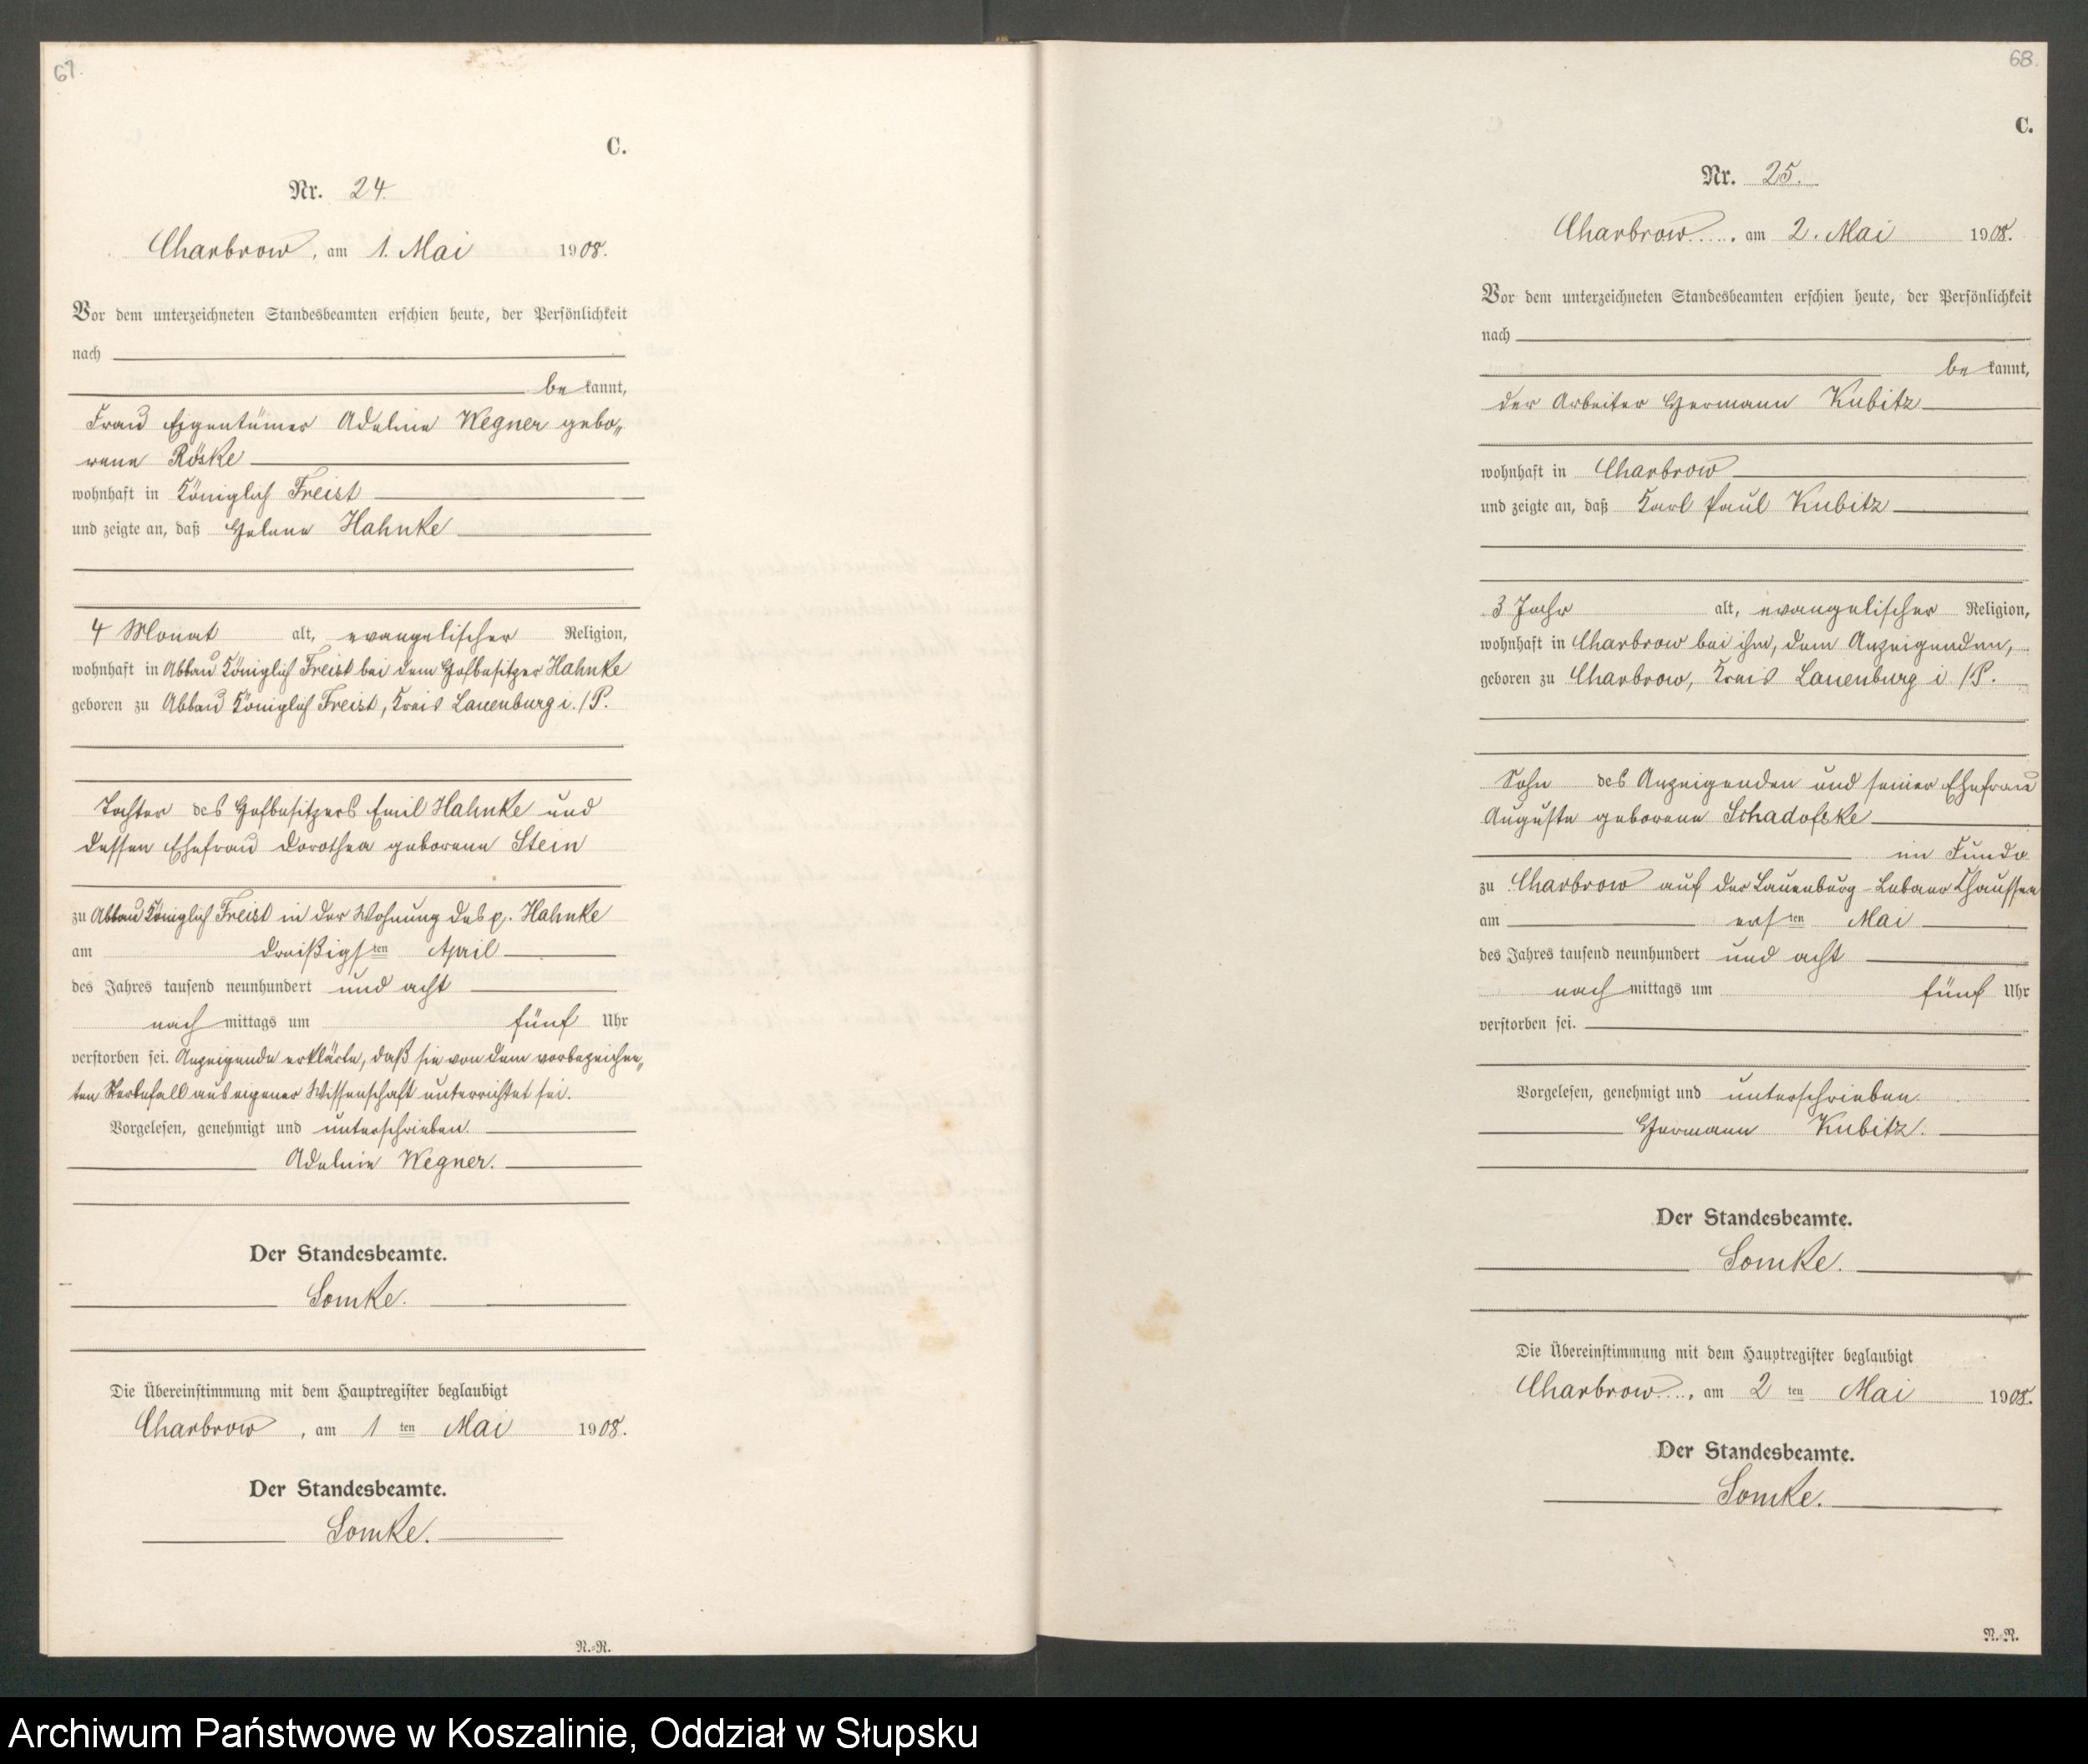 67.
C.
Nr. 24.
Charbrow, am 1. Mai 1908.
Vor dem unterzeichneten Standesbeamten erschien heute, der Persönlichkeit
nach
be kannt,
Frau Eigentümer Adeline Wegner gebo„
rene Röske
wohnhaft in Königlich Freist
und zeigte an, daß Helene Hahnke
4 Monat alt, evangelischer Religion,
wohnhaft in Abbau Königlich Freist bei dem Hofbesitzer Hahnke
geboren zu Abbau Königlich Freist, Kreis Lauenburg i./P.
Tochter des Hofbesitzers Emil Hahnke und
dessen Ehefrau Dorothea geborene Stein
zu Abbau Königlich Freist in der Wohnung des p. Hahnke
am dreißigsten April
des Jahres tausend neunhundert und acht
nach mittags um fünf Uhr
verstorben sei. Anzeigende erklärte, daß sie von dem vorbezeichne„
ten Sterbefall aus eigener Wissenschaft unterrichtet sei.
Vorgelesen, genehmigt und unterschrieben.
Adeline Wegner.
Der Standesbeamte.
Lomke.
Die Übereinstimmung mit dem Hauptregister beglaubigt
Charbrow, am 1 ten Mai 1908.
Der Standesbeamte.
Lomke.
N.=R.
68.
C.
Nr. 25.
Charbrow, am 2. Mai 1908.
Vor dem unterzeichneten Standesbeamten erschien heute, der Persönlichkeit
nach
be kannt,
der Arbeiter Hermann Kubitz
wohnhaft in Charbrow
und zeigte an, daß Karl Paul Kubitz
3 Jahr alt, evangelischer Religion,
wohnhaft in Charbrow bei ihm, dem Anzeigenden,
geboren zu Charbrow, Kreis Lauenburg i /P.
Sohn des Anzeigenden und seiner Ehefrau
Auguste geborene Schadofske
zu Charbrow auf der Lauenburg-Lebaer Chaussee
am ersten Mai
des Jahres tausend neunhundert und acht
nach mittags um fünf Uhr
verstorben sei.
Vorgelesen, genehmigt und unterschrieben.
Hermann Kubitz.
Der Standesbeamte.
Lomke.
Die Übereinstimmung mit dem Hauptregister beglaubigt
Charbrow, am 2 ten Mai 1908.
Der Standesbeamte.
Lomke.
N.=R.
Archiwum Państwowe w Koszalinie, Oddział w Słupsku